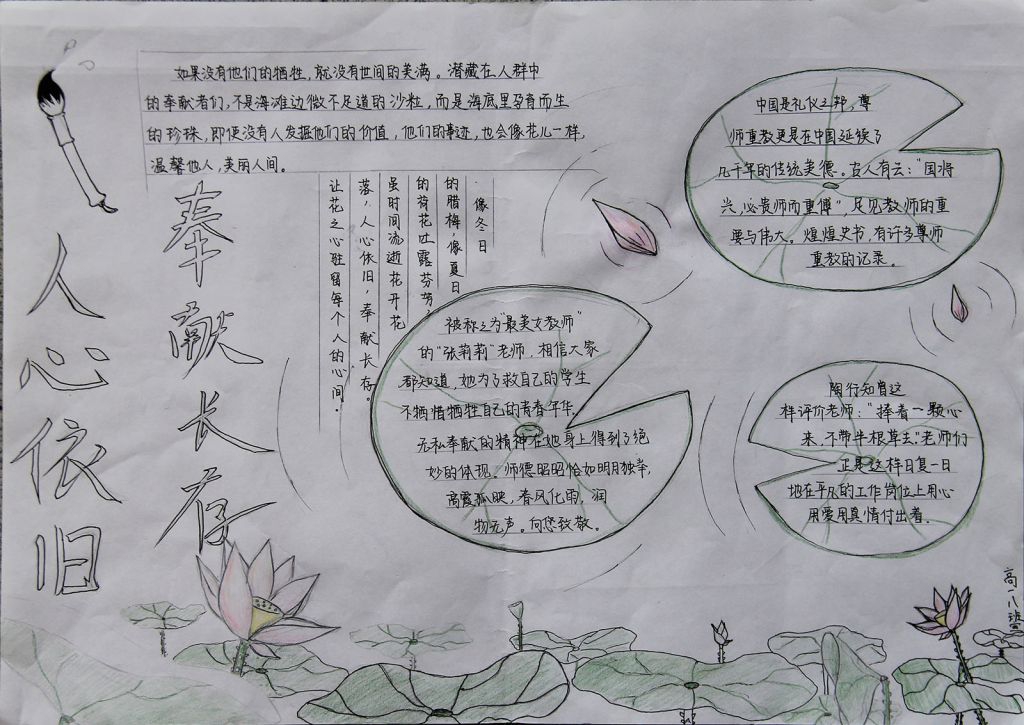 如果没有他们的牺牲，就没有世间的美满。潜藏在人群中
的奉献者们，不是海滩边微不足道的沙粒，而是海底里孕育而生
的珍珠，即使没有人发掘他们的价值，他们的事迹，也会像花儿一样，
温馨他人，美丽人间。
人心依旧
奉献长存
像冬日
的腊梅，像夏日
的荷花吐露芬芳，
虽时间流逝花开花
落，人心依旧，奉献长存。
让花之心驻留每个人的心间。
被称之为“最美女教师”
的“张莉莉”老师，相信大家
都知道，她为了救自己的学生
不牺惜牺牲自己的青春年华，
无私奉献的精神在她身上得到了绝
妙的体现。师德昭昭恰如明月独举，
高霞孤映，春风化雨，润
物无声。向您致敬。
中国是礼仪之邦，尊
师重教更是在中国延续了
几千年的传统美德。古人有云：“国将
兴，必贵师而重傅”，足见教师的重
要与伟大。煌煌史书，有许多尊师
重教的记录。
陶行知曾这
样评价老师：“捧着一颗心
来，不带半根草去”老师们
正是这样日复一日
地在平凡的工作岗位上用心
用爱用真情付出着。
高一八班